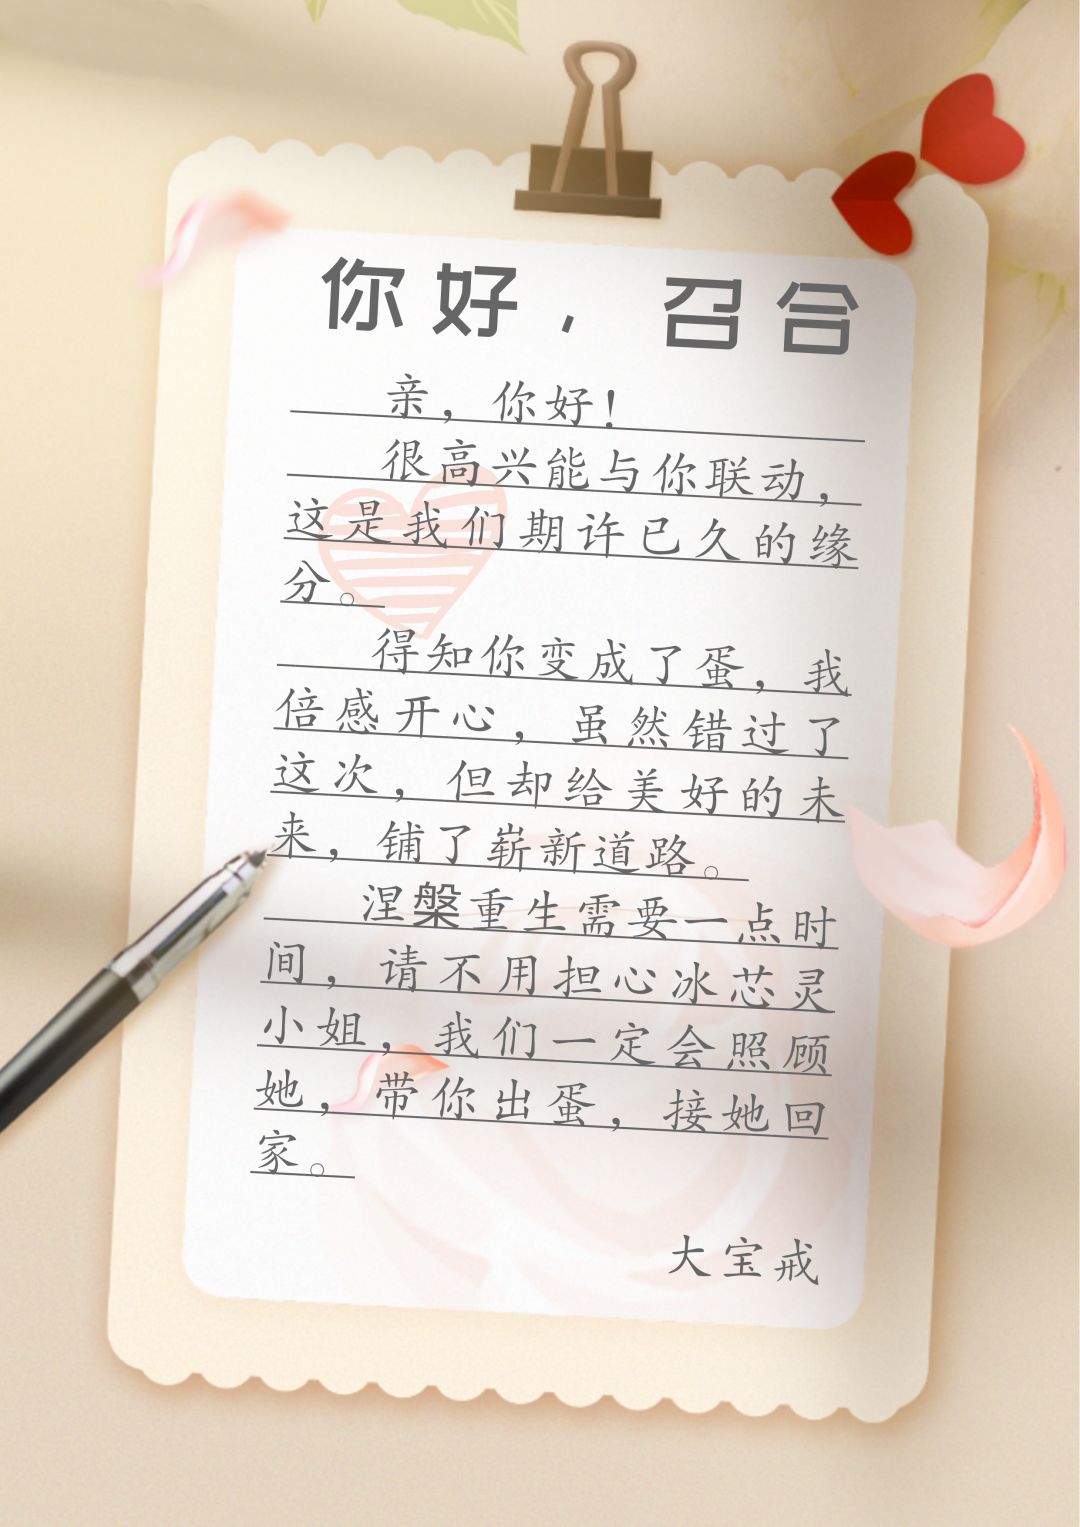 你好，召合
亲，你好！
很高兴能与你联动，
这是我们期许已久的缘
分。
得知你变成了蛋，我
倍感开心，虽然错过了
这次，但却给美好的未
来，铺了崭新道路。
涅槃重生需要一点时
间，请不用担心冰芯灵
小姐，我们一定会照顾
她，带你出蛋，接她回
家。
大宝戒